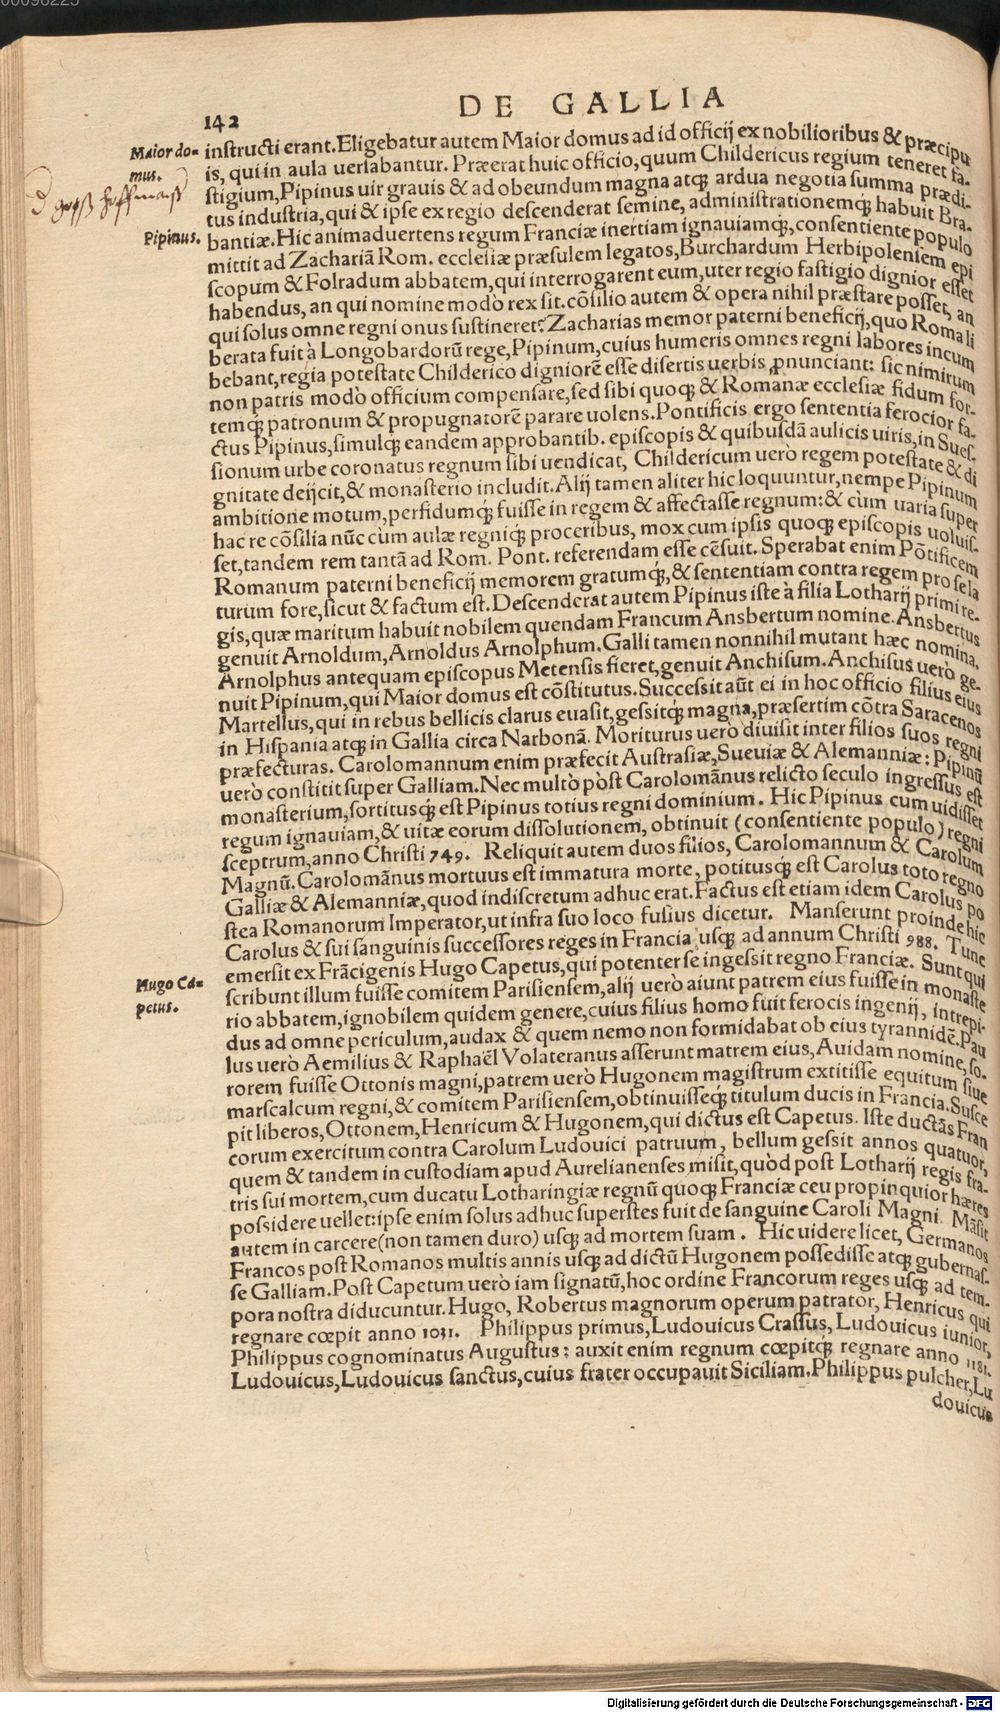 00096225
DE GALLIA
142
Maior do=
mus.
Pipinus.
Hugo Ca=
petus.
instructi erant. Eligebatur autem Maior domus ad id officij ex nobilioribus & præcipu
is, qui in aula uersabantur. Præerat huic officio, quum Childericus regium teneret fa-
stigium, Pipinus uir grauis & ad obeundum magna atq; ardua negotia summa prædi-
tus industria, qui & ipse ex regio descenderat semine, administrationemq; habuit Bra-
bantiæ. Hic animaduertens regum Franciæ inertiam ignauiamq;, consentiente populo
mittit ad Zachariã Rom. ecclesiæ præsulem legatos, Burchardum Herbipolensem epi
scopum & Folradum abbatem, qui interrogarent eum, uter regio fastigio dignior esset
habendus, an qui nomine modò rex sit. cõsilio autem & opera nihil præstare posset, an
qui solus omne regni onus sustineret? Zacharias memor paterni beneficij, quo Roma li
berata fuit à Longobardorũ rege, Pipinum, cuius humeris omnes regni labores incum
bebant, regia potestate Childerico digniorẽ esse disertis uerbis ꝓnunciant: sic nimirum
non patris modò officium compensare, sed sibi quoq; & Romanæ ecclesiæ fidum for-
temq; patronum & propugnatorẽ parare uolens. Pontificis ergo sententia ferocior fa-
ctus Pipinus, simulq; eandem approbantib. episcopis & quibusdã aulicis uiris, in Sues-
sionum urbe coronatus regnum sibi uendicat, Childericum uerò regem potestate & di
gnitate deijcit, & monasterio includit. Alij tamen aliter hic loquuntur, nempe Pipinum
ambitione motum, perfidumq; fuisse in regem & affectasse regnum: & cùm uaria super
hac re cõsilia nũc cùm aulæ regniq; proceribus, mox cum ipsis quoq; episcopis uoluis-
set, tandem rem tantã ad Rom. Pont. referendam esse cẽsuit. Sperabat enim Põtificem
Romanum paterni beneficij memorem gratumq;, & sententiam contra regem pro se la
turum fore, sicut & factum est. Descenderat autem Pipinus iste à filia Lotharij primi re-
gis, quæ maritum habuit nobilem quendam Francum Ansbertum nomine. Ansbertus
genuit Arnoldum, Arnoldus Arnolphum. Galli tamen nonnihil mutant hæc nomina.
Arnolphus antequam episcopus Metensis fieret, genuit Anchisum. Anchisus uerò ge-
nuit Pipinum, qui Maior domus est cõstitutus. Successit aũt ei in hoc officio filius eius
Martellus, qui in rebus bellicis clarus euasit, gessitq; magna, præsertim cõtra Saracenos
in Hispania atq; in Gallia circa Narbonã. Moriturus uerò diuisit inter filios suos regni
præfecturas. Carolomannum enim præfecit Austrasiæ, Sueuiæ & Alemanniæ: Pipinũ
uerò constitit super Galliam. Nec multò pòst Carolomãnus relicto seculo ingressus est
monasterium, sortitusq; est Pipinus totius regni dominium. Hic Pipinus cum uidisset
regum ignauiam, & uitæ eorum dissolutionem, obtinuit (consentiente populo) regni
sceptrum, anno Christi 749. Reliquit autem duos filios, Carolomannum & Carolum
Magnũ. Carolomãnus mortuus est immatura morte, potitusq; est Carolus toto regno
Galliæ & Alemanniæ, quod indiscretum adhuc erat. Factus est etiam idem Carolus po
stea Romanorum Imperator, ut infra suo loco fusius dicetur. Manserunt proinde hic
Carolus & sui sanguinis successores reges in Francia usq; ad annum Christi 988. Tunc
emersit ex Frãcigenis Hugo Capetus, qui potenter se ingessit regno Franciæ. Sunt qui
scribunt illum fuisse comitem Parisiensem, alij uerò aiunt patrem eius fuisse in monaste
rio abbatem, ignobilem quidem genere, cuius filius homo fuit ferocis ingenij, intrepi-
dus ad omne periculum, audax & quem nemo non formidabat ob eius tyrannidẽ. Pau
lus uerò Aemilius & Raphaël Volateranus asserunt matrem eius, Auidam nomine, so-
rorem fuisse Ottonis magni, patrem uerò Hugonem magistrum extitisse equitum siue
marscalcum regni, & comitem Parisiensem, obtinuisseq; titulum ducis in Francia. Susce
pit liberos, Ottonem, Henricum & Hugonem, qui dictus est Capetus. Iste ductãs Fran
corum exercitum contra Carolum Ludouici patruum, bellum gessit annos quatuor,
quem & tandem in custodiam apud Aurelianenses misit, quòd post Lotharij regis fra-
tris sui mortem, cum ducatu Lotharingiæ regnũ quoq; Franciæ ceu propinquior hæres
possidere uellet: ipse enim solus adhuc superstes fuit de sanguine Caroli Magni. Mãsit
autem in carcere (non tamen duro) usq; ad mortem suam. Hic uidere licet, Germanos
Francos post Romanos multis annis usq; ad dictũ Hugonem possedisse atq; gubernas-
se Galliam. Post Capetum uerò iam signatũ, hoc ordine Francorum reges usq; ad tem-
pora nostra diducuntur. Hugo, Robertus magnorum operum patrator, Henricus qui
regnare cœpit anno 1031. Philippus primus, Ludouicus Crassus, Ludouicus iunior,
Philippus cognominatus Augustus: auxit enim regnum cœpitq; regnare anno 1181.
Ludouicus, Ludouicus sanctus, cuius frater occupauit Siciliam. Philippus pulcher, Lu
douicus
Digitalisierung gefördert durch die Deutsche Forschungsgemeinschaft - DFG